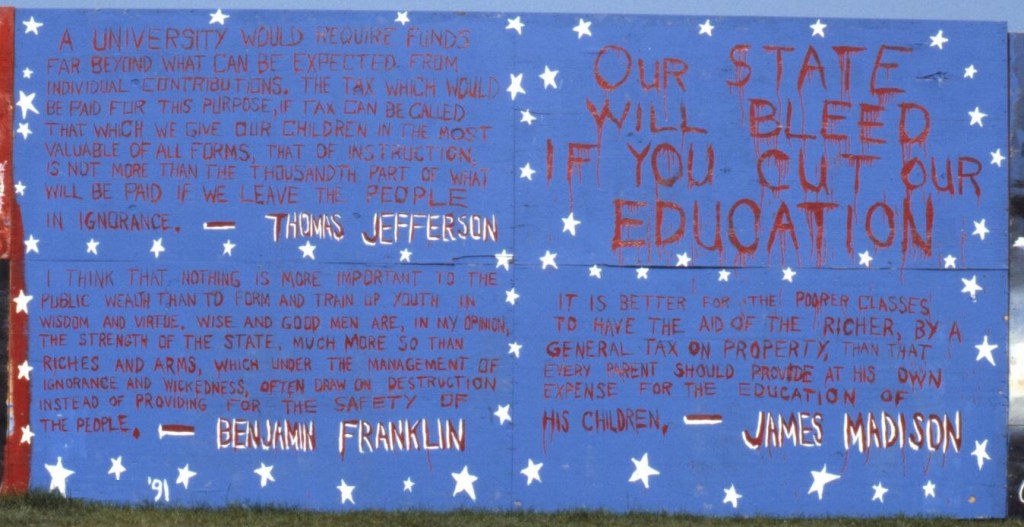 A UNIVERSITY WOULD REQUIRE FUNDS
FAR BEYOND WHAT CAN BE EXPECTED FROM
INDIVIDUAL CONTRIBUTIONS. THE TAX WHICH WOULD
BE PAID FOR THIS PURPOSE, IF TAX CAN BE CALLED
THAT WHICH WE GIVE OUR CHILDREN IN THE MOST
VALUABLE OF ALL FORMS, THAT OF INSTRUCTION.
IS NOT MORE THAN THE THOUSANDTH PART OF WHAT
WILL BE PAID IF WE LEAVE THE PEOPLE
IN IGNORANCE. — THOMAS JEFFERSON
OUR STATE
WILL BLEED
IF YOU CUT OUR
EDUCATION
I THINK THAT NOTHING IS MORE IMPORTANT TO THE
PUBLIC WEALTH THAN TO FORM AND TRAIN UP YOUTH IN
WISDOM AND VIRTUE, WISE AND GOOD MEN ARE, IN MY OPINION,
THE STRENGTH OF THE STATE, MUCH MORE SO THAN
RICHES AND ARMS, WHICH UNDER THE MANAGEMENT OF
IGNORANCE AND WICKEDNESS, OFTEN DRAW ON DESTRUCTION
INSTEAD OF PROVIDING FOR THE SAFETY OF
THE PEOPLE. — BENJAMIN FRANKLIN
'91
IT IS BETTER FOR THE POORER CLASSES
TO HAVE THE AID OF THE RICHER, BY A
GENERAL TAX ON PROPERTY, THAN THAT
EVERY PARENT SHOULD PROVIDE AT HIS OWN
EXPENSE FOR THE EDUCATION OF
HIS CHILDREN. — JAMES MADISON